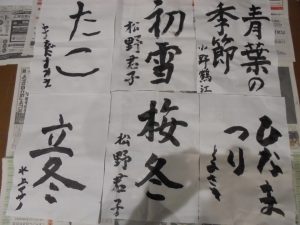 青葉の
季節
小野鶴江
初雪
松野君子
たこ
ひなま
つり
梅冬
松野君子
立冬